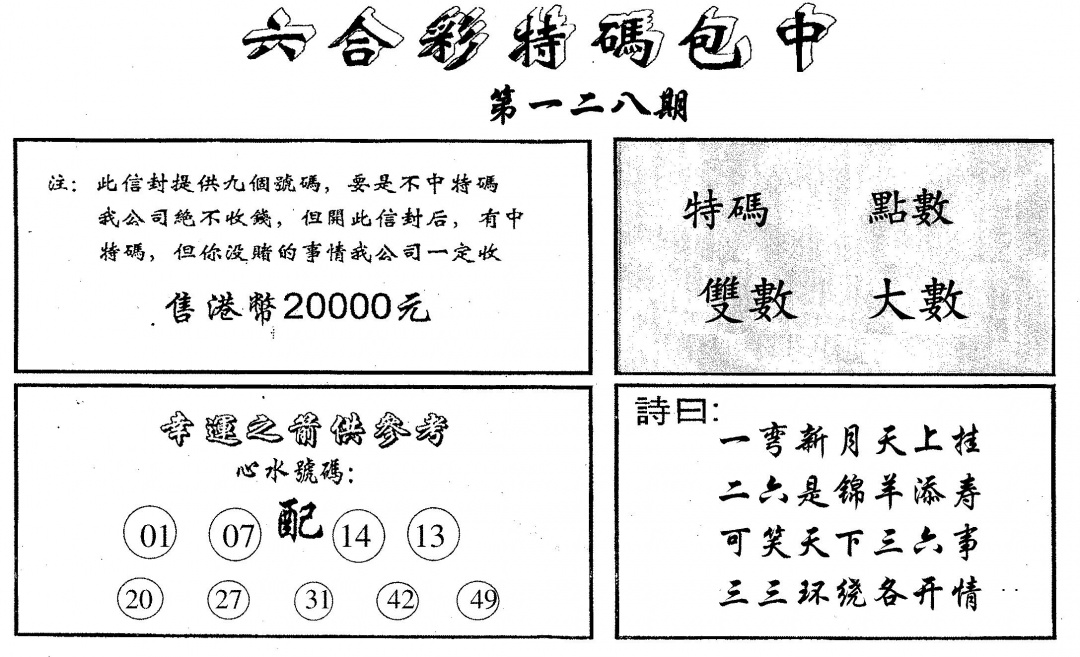 六合彩特碼包中
第一二八期
注：此信封提供九個號碼，要是不中特碼
我公司絕不收錢，但開此信封后，有中
特碼，但你没賭的事情我公司一定收
售港幣20000元
特碼 點數
雙數 大數
幸運之箭供參考
心水號碼：
01 07 配 14 13
20 27 31 42 49
詩曰：
一弯新月天上挂
二六是锦羊添寿
可笑天下三六事
三三环绕各开情